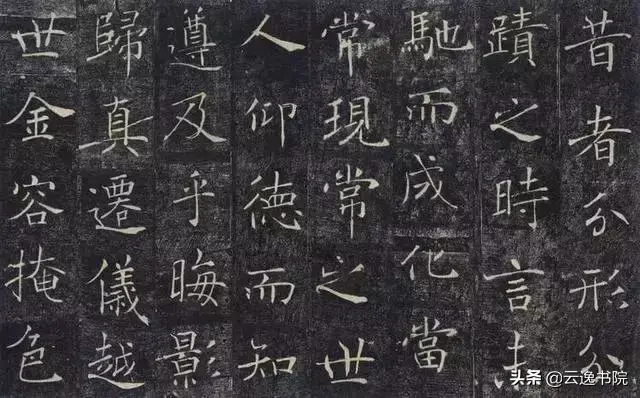 昔者分形分
蹟之時言未
馳而成化當
常現常之世
人仰德而知
遵及乎晦影
歸真遷儀越
世金容掩色
头条 @云逸书院